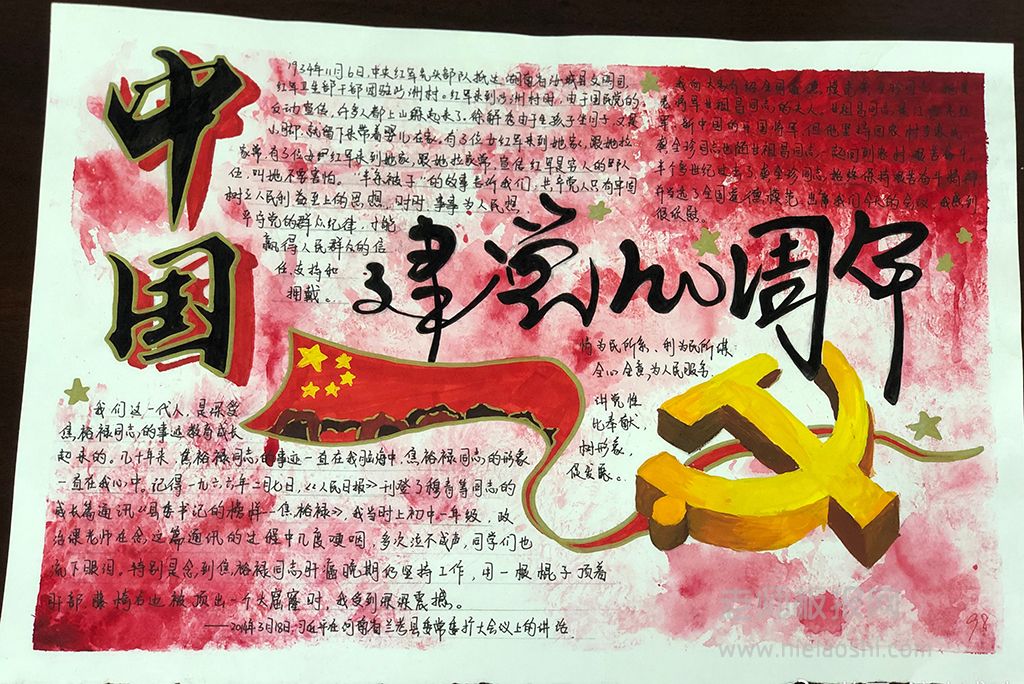 中国
1934年11月6日,中央红军先头部队抵达湖南省汝城县文明司,
红军卫生部干部团驻沙洲村。红军来到沙洲村时,由于国民党的
反动宣传,许多人都上山躲起来了。徐解秀由于生孩子坐月子,又是
小脚,就留下来带着婴儿在家。有3位女红军来到她家,跟她拉
家常,有3位女红军来到她家,跟她拉家常,宣传红军是穷人的队
伍,叫她不要害怕。"半条被子"的故事告诉我们,共产党人只有牢固
树立人民利益至上的思想。时时、事事为人民想,
牢守党的群众纪律,才能
赢得人民群众的信
任、支持和
拥戴。
我向大家介绍全国道德模范龚全珍同志,她是
老将军甘祖昌同志的夫人。甘祖昌同志是江西老红
军、新中国的开国将军,但他坚持回家当农民,
龚全珍同志也随甘祖昌同志一起回到农村艰苦奋斗。
半个多世纪过去了,龚全珍同志始终保持艰苦奋斗精神
并当选了全国道德模范,出席我们今天的会议,我感到
很欣慰。
建党100周年
情为民所系、利为民所谋
全心全意为人民服务
讲党性
比奉献,
树形象,
促发展。
我们这一代人,是深受
焦裕禄同志的事迹教育成长
起来的。几十年来,焦裕禄同志的事迹一直在我脑海中,焦裕禄同志的形象
一直在我心中。记得一九六六年二月七日,《人民日报》刊登了穆青等同志的
成长篇通讯《县委书记的榜样——焦裕禄》,我当时上初中一年级,政
治课老师在念这篇通讯的过程中几度哽咽,多次泣不成声,同学们也
流下眼泪。特别是念到焦裕禄同志肝癌晚期仍坚持工作,用一根棍子顶着
肝部,藤椅右边被顶出一个大窟窿时,我受到深深震撼。
——2014年3月18日,习近平在河南省兰考县委常委扩大会议上的讲话
98
www.hielaoshi.com